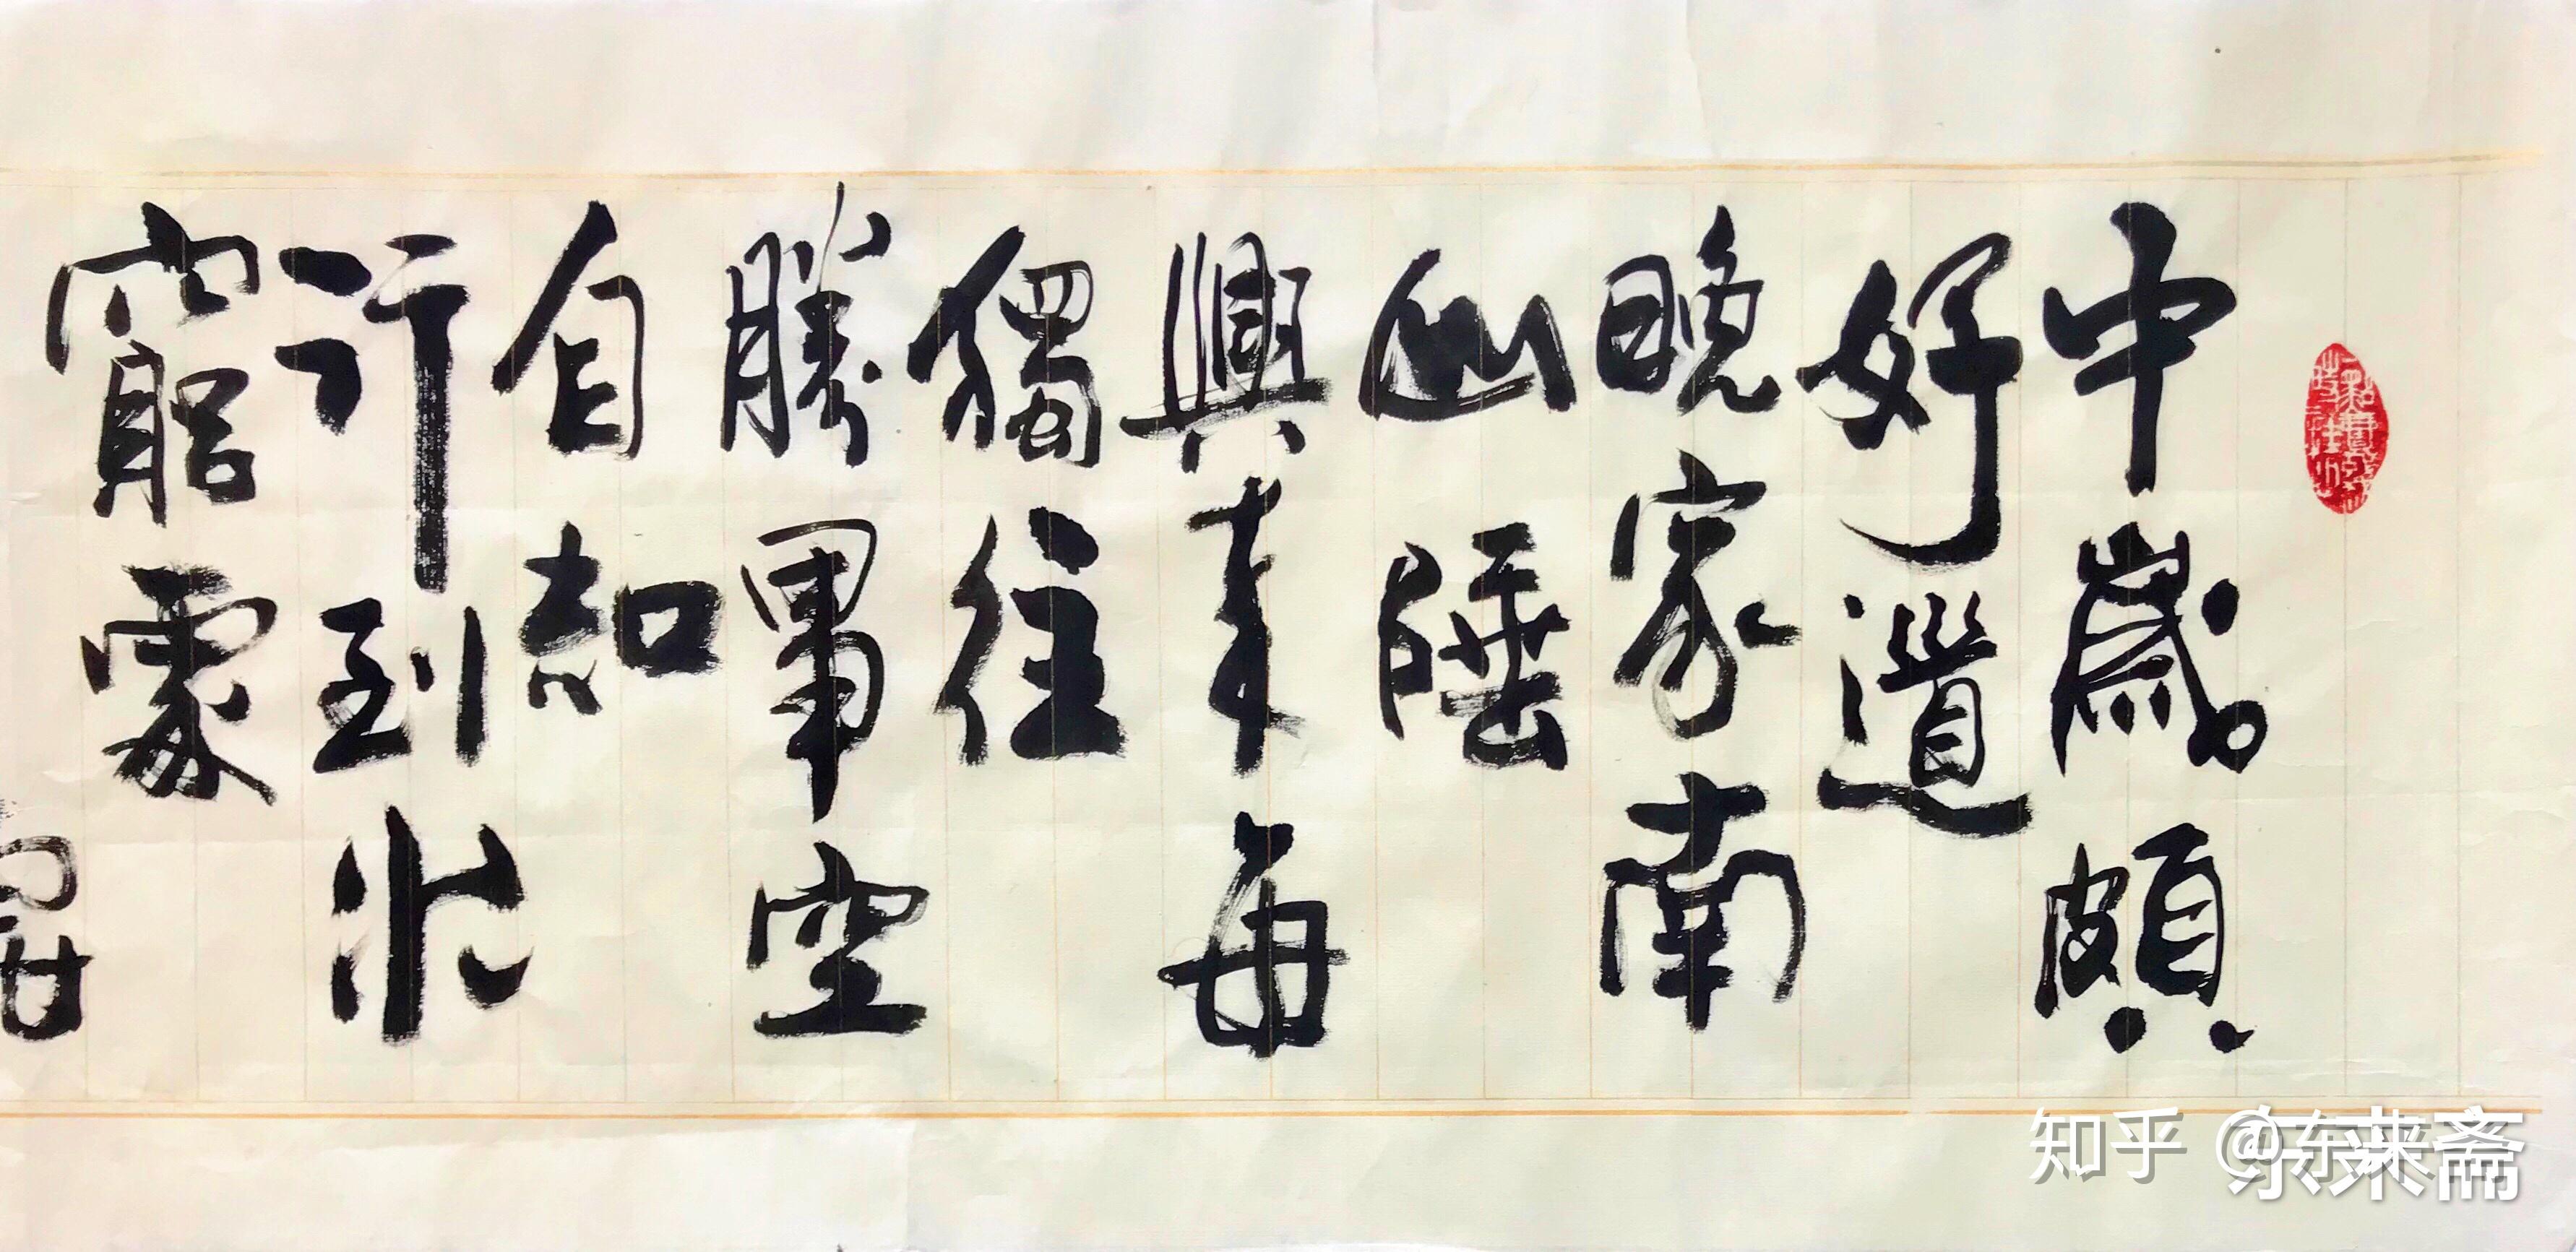 中歲頗
好道
晚家南
山陲
興来每
獨往
勝事空
自知
行到水
窮處
知乎 @东来斋